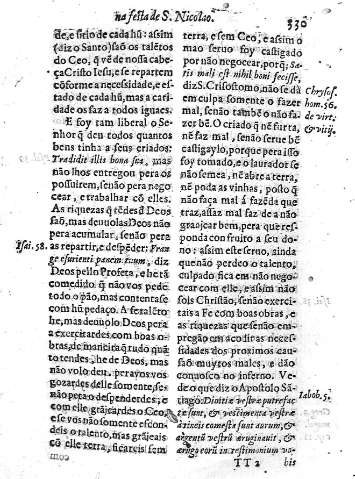 na festa de S. Nicolao.
330
de, e sirio de cada hũ: assim
(diz o Santo) saõ os talẽtos
do Ceo, q̃ vẽ de nossa cabe-
ça Cristo Iesu, e se repartem
cõforme a necessidade, e es-
tado de cada hũ, mas a cari-
dade os faz a todos iguaes.
E foy tam liberal o Se-
nhor q̃ deu todos quantos
bens tinha a seus criados:
Tradidit illis bona sua, mas
naõ lhos entregou pera os
possuirem, senaõ pera nego-
cear, e trabalhar cõ elles.
As riquezas q̃ tẽdes Deos
saõ, mas deuuolas Deos naõ
pera acumular, senão pere
Isai. 58.
as repartir, e despẽder: Fran-
ge esurienti panem tuum, diz
Deos pello Profeta, e he tã
comedido q̃ naõ vos pede
todo o paõ, mas contentase
com hũ pedaço. A fazalẽto
he, mas deuolo Deos pera
a exercitardes com boas o-
bras, de maneira q̃ tudo quã
to tendes, he de Deos, mas
naõ volo deu pera vos vos
gozardes delle somente, se-
naõ pera o despenderdes, e
com elle grãjeardes o Ceo,
e se vos naõ somente escon-
deis o talento, mas grãjeais
cõ elle terra, ficareis sem
com
terra, e sem Ceo, e assim o
mao seruo foy castigado
por naõ negocear, porq̃: Sa-
tis mali est nihil boni fecisse,
diz S. Crisostomo, naõ se dâ
em culpa somente o fazer
mal, senaõ tambẽ o naõ fa-
zer bẽ. O criado q̃ nẽ furta,
nẽ faz mal, senaõ serue bẽ
castigaylo, porque pera isso
foy tomado, e o laurador se
naõ semea, nẽ abre a terra,
nẽ poda as vinhas, posto q̃
naõ faça mal á fazẽda que
traz, assaz mal faz de a naõ
grãjear bem, pera que res-
ponda com fruito a seu do-
no: assim este seruo, ainda
quenaõ perdeo o talento,
culpado fica em naõ nego-
cear com elle, e assim naõ
sois Christão, senaõ exerci-
tais a Fe com boas obras, e
as riquezas que senão em-
pregão em acodir as neces-
sidades dos proximos cau-
saõ muytos males, e dão
conuosco no inferno. Ve-
de o que diz o Apostolo Sã-
tiago: Diuitiæ vestræ putrefac-
tæ sunt, & vestimenta vestra
a tineis comesta sunt aurum, &
argentũ vestrũ æruginauit, &
ærugo eorũ in testimonium vo-
TT 2 bis
Chrysos.
hom. 56.
de virt.
& vitij.
Iacob. 5.